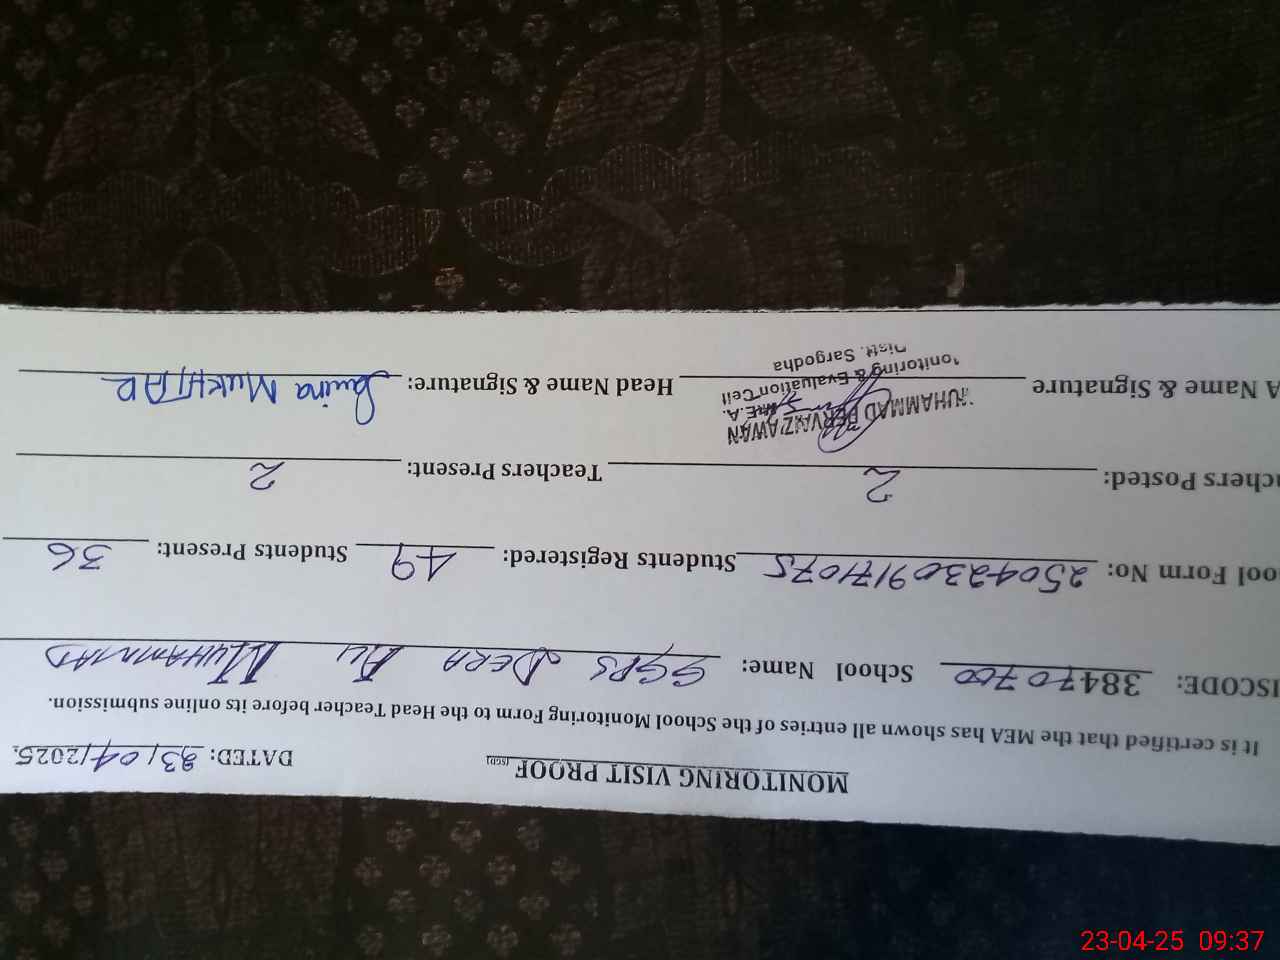 MONITORING VISIT PROOF (SGD)
DATED: 23/04/2025.
It is certified that the MEA has shown all entries of the School Monitoring Form to the Head Teacher before its online submission.
ISCODE: 38470700 School Name: GGPS DERA ALI MUHAMMAD
ool Form No: 25042309171075 Students Registered: 49 Students Present: 36
chers Posted: 2 Teachers Present: 2
A Name & Signature Head Name & Signature: Saira MUKHTAR
MUHAMMAD PERVAIZ AWAN
M.E.A.
Monitoring & Evaluation Cell
Distt. Sargodha
23-04-25 09:37